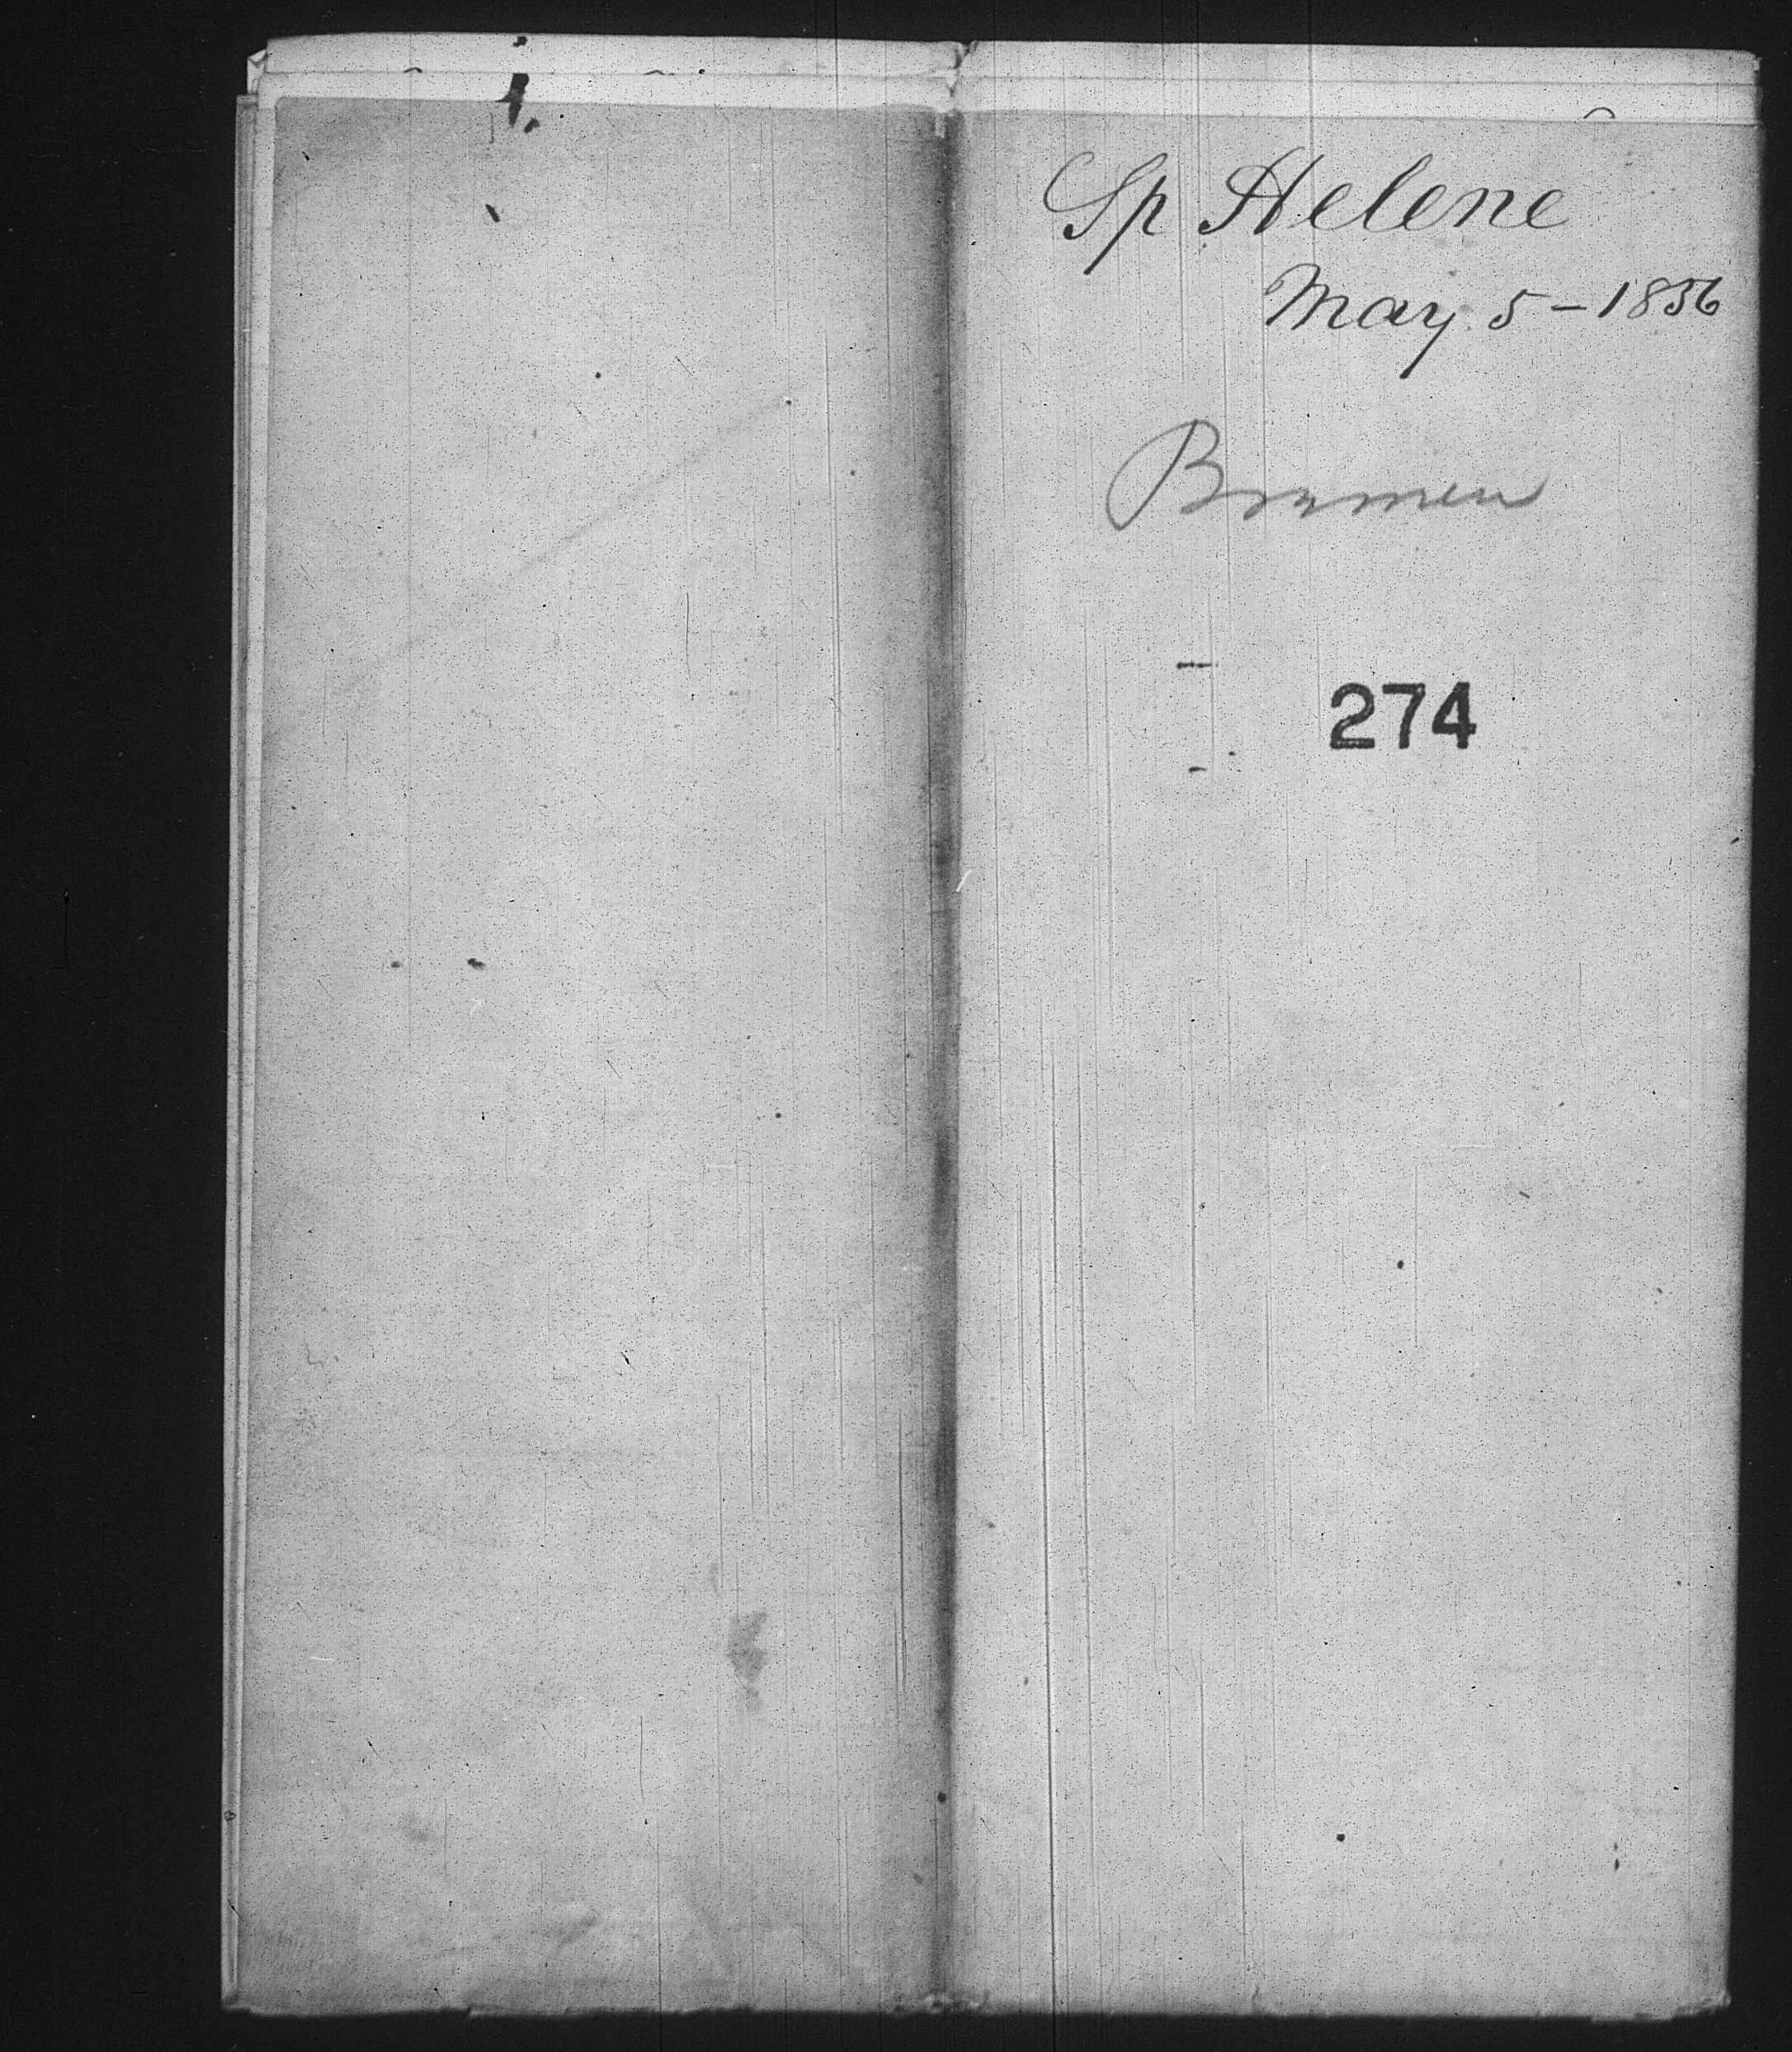 Sp Helene
May 5 - 1856
Bremen
274